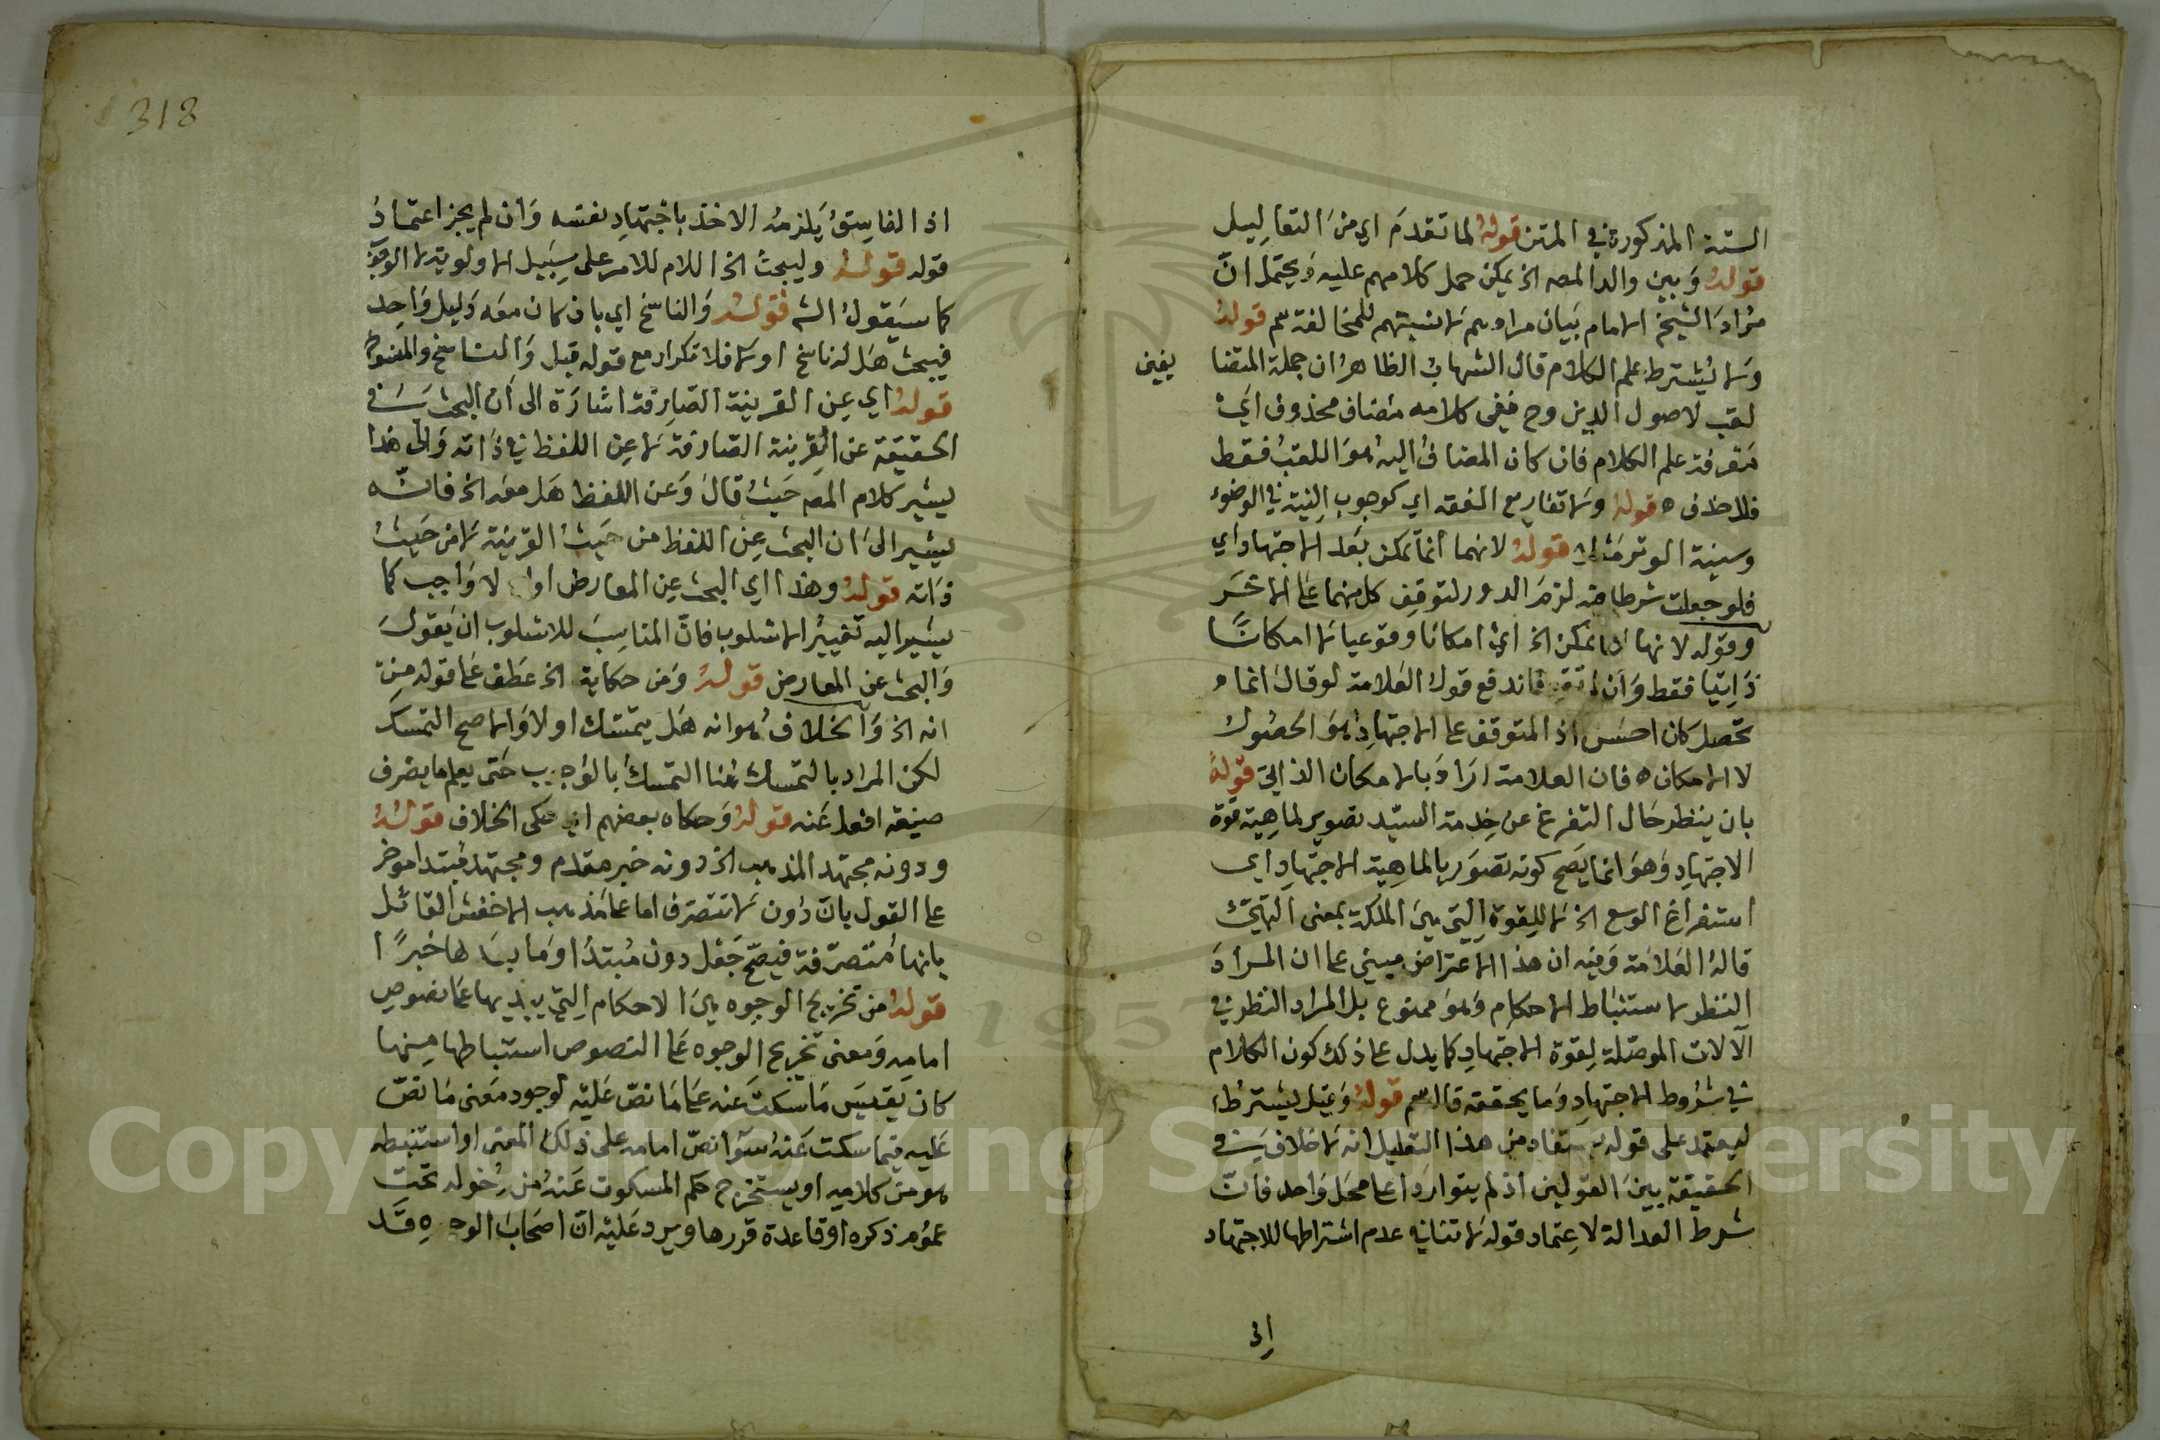 الستة المذكورة في المتن قوله لما تقدم اي من التعاليل
قوله وبين والد المصه الخ يمكن حمل كلامهم عليه ويحتمل ان
مراد الشيخ الامام بيان مرادهم لا نسبتهم للمخالفة سم قوله
ولا يشترط علم الكلام قال الشهاب الظاهر ان جملة المتضا
يفين
لقب لاصول الدين وح ففي كلامه مضاف محذوف اي
معرفة علم الكلام فان كان المضاف اليه هو اللقب فقط
فلا حذف ه قوله ولا تفاريع الفقه اي كوجوب النية في الوضوء
وسنية الوتر مثلا قوله لانها انما تمكن بعد الاجتهاد اي
فلو جعلت شرطا فيه لزم الدور لتوقف كل منهما على الاخر
وقوله لانها انما تمكن الخ اي امكانا وقوعيا لا امكانا
ذاتيا فقط وان فاندفع قول العلامة لو قال انما
تحصل كان احسن اذ المتوقف على الاجتهاد هو الحصول
لا الامكان ه فان العلامة اراد بالامكان الذاتي قوله
بان ينظر حال التفرغ عن خدمة السيد تصوير لماهية قوة
الاجتهاد وهو انما يصح كونه تصويرا لماهية الاجتهاد اي
استفراغ الوسع الخ لا للقوة التي هي الملكة بمعنى التهيئ
قاله العلامة وفيه ان هذا الاعتراض مبني على ان المراد
النظر لاستنباط الاحكام وهو ممنوع بل المراد النظر في
الالات الموصلة لقوة الاجتهاد كما يدل على ذلك كون الكلام
في شروط الاجتهاد وما يحققه قاله سم قوله وقيل يشترط
ليعتمد على قوله يستفاد من هذا التعليل انه لا خلاف في
الحقيقة بين القولين اذ لم يتواردا على محل واحد فان
شرط العدالة لاعتماد قوله لا تنافيه عدم اشتراطها للاجتهاد
اذ
318
اذ الفاسق يلزمه الاخذ باجتهاد نفسه وان لم يجز اعتماد
قوله قوله وليبحث الخ اللام للامر على سبيل الاولوية لا الوجوب
كما سيقول الشه قوله والناسخ اي بان كان معه دليل واحد
فيبحث هل له ناسخ او لا فلا تكرار مع قوله قبل والناسخ والمنسوخ
قوله اي عن القرينة الصارفة اشارة الى ان البحث في
الحقيقة عن القرينة الصارفة لا عن اللفظ في ذاته والى هذا
يشير كلام المصه حيث قال وعن اللفظ هل معه الخ فانه
يشير الى ان البحث عن اللفظ من حيث القرينة لا من حيث
ذاته قوله وهذا اي البحث عن المعارض اولى لا واجب كما
يشير اليه تغيير الاسلوب فان المناسب للاسلوب ان يقول
والبحث عن المعارض قوله ومن حكاية الخ عطف على قوله من
انه الخ والخلاف هو انه هل يتمسك اولا والاصح التمسك
لكن المراد بالتمسك هنا التمسك بالوجوب حتى يعلم ما يصرف
صيغة افعل عنه قوله وحكاه بعضهم اي حكى الخلاف قوله
ودونه مجتهد المذهب الخ دونه خبر مقدم ومجتهد مبتدا موخر
على القول بان دون لا تتصرف اما على مذهب الاخفش القائل
بانها متصرفة فيصح جعل دون مبتدا وما بعدها خبرا
قوله من تخريج الوجوه هي الاحكام التي يبديها على نصوص
امامه ومعنى تخريج الوجوه على النصوص استنباطها منها
كان يقيس ما سكت عنه على ما نص عليه لوجود معنى ما نص
عليه فيما سكت عنه سوا نص امامه على ذلك المعنى او استنبطه
هو من كلامه او يستخرج حكم المسكوت عنه من دخوله تحت
عموم ذكره او قاعدة قررها ويرد عليه ان اصحاب الوجوه قد